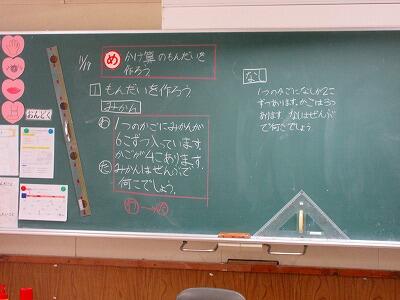 11/17
め かけ算のもんだいを
作ろう
1 もんだいを作ろう
みかん
わ 1つのかごにみかんが
6こずつ入っています。
かごが4こあります。
た みかんはぜんぶで
何こでしょう。
おんどく
なし
1つのかごになしが2こ
ずつあります。かごは3つ
あります。なしはぜんぶ
で何こでしょう